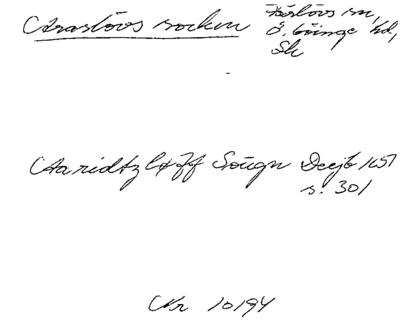 Araslövs socken
Färlövs sn,
Ö. Göinge hd,
Sk
Aaridtzløff Sougn DecjB 1651
s. 301
Nr 10194